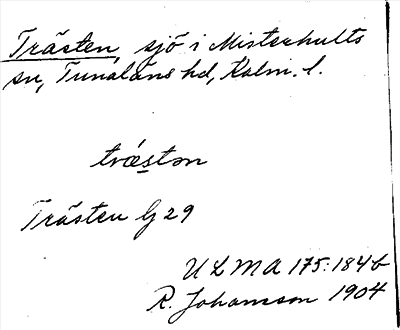 Trästen, sjö i Misterhults
sn, Tunaläns hd, Kalm. l.
trǽstən
Trästen G 29
ULMA 175:184 b
R. Johansson 1904